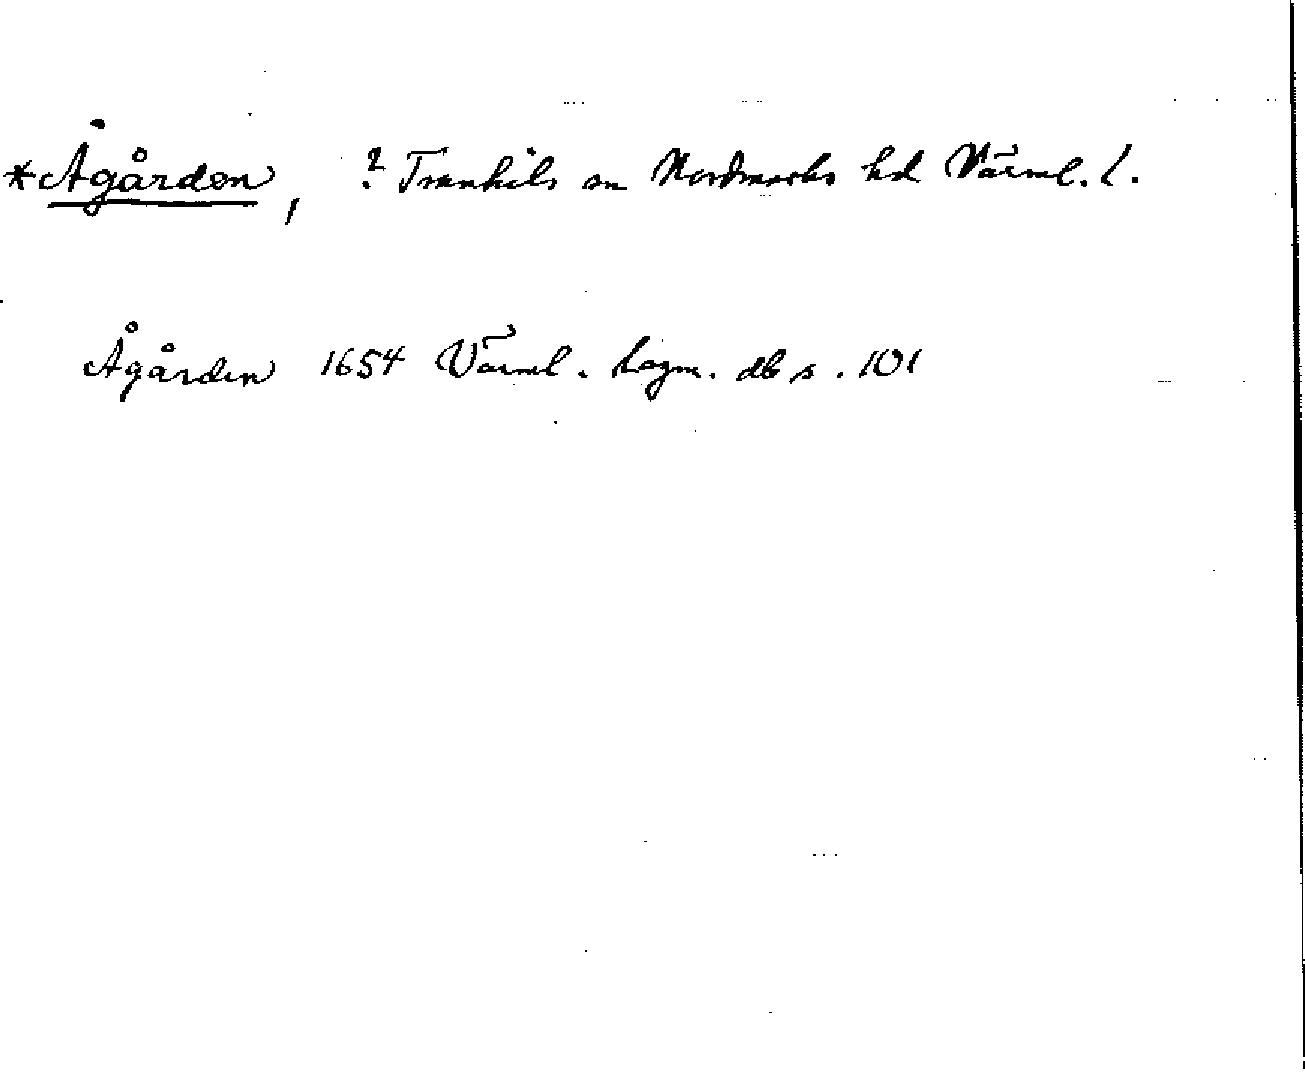 *Ågården, ? Trankils sn Nordmarks hd Värml. l.
Ågården 1654 Värml. lagm. db s. 101